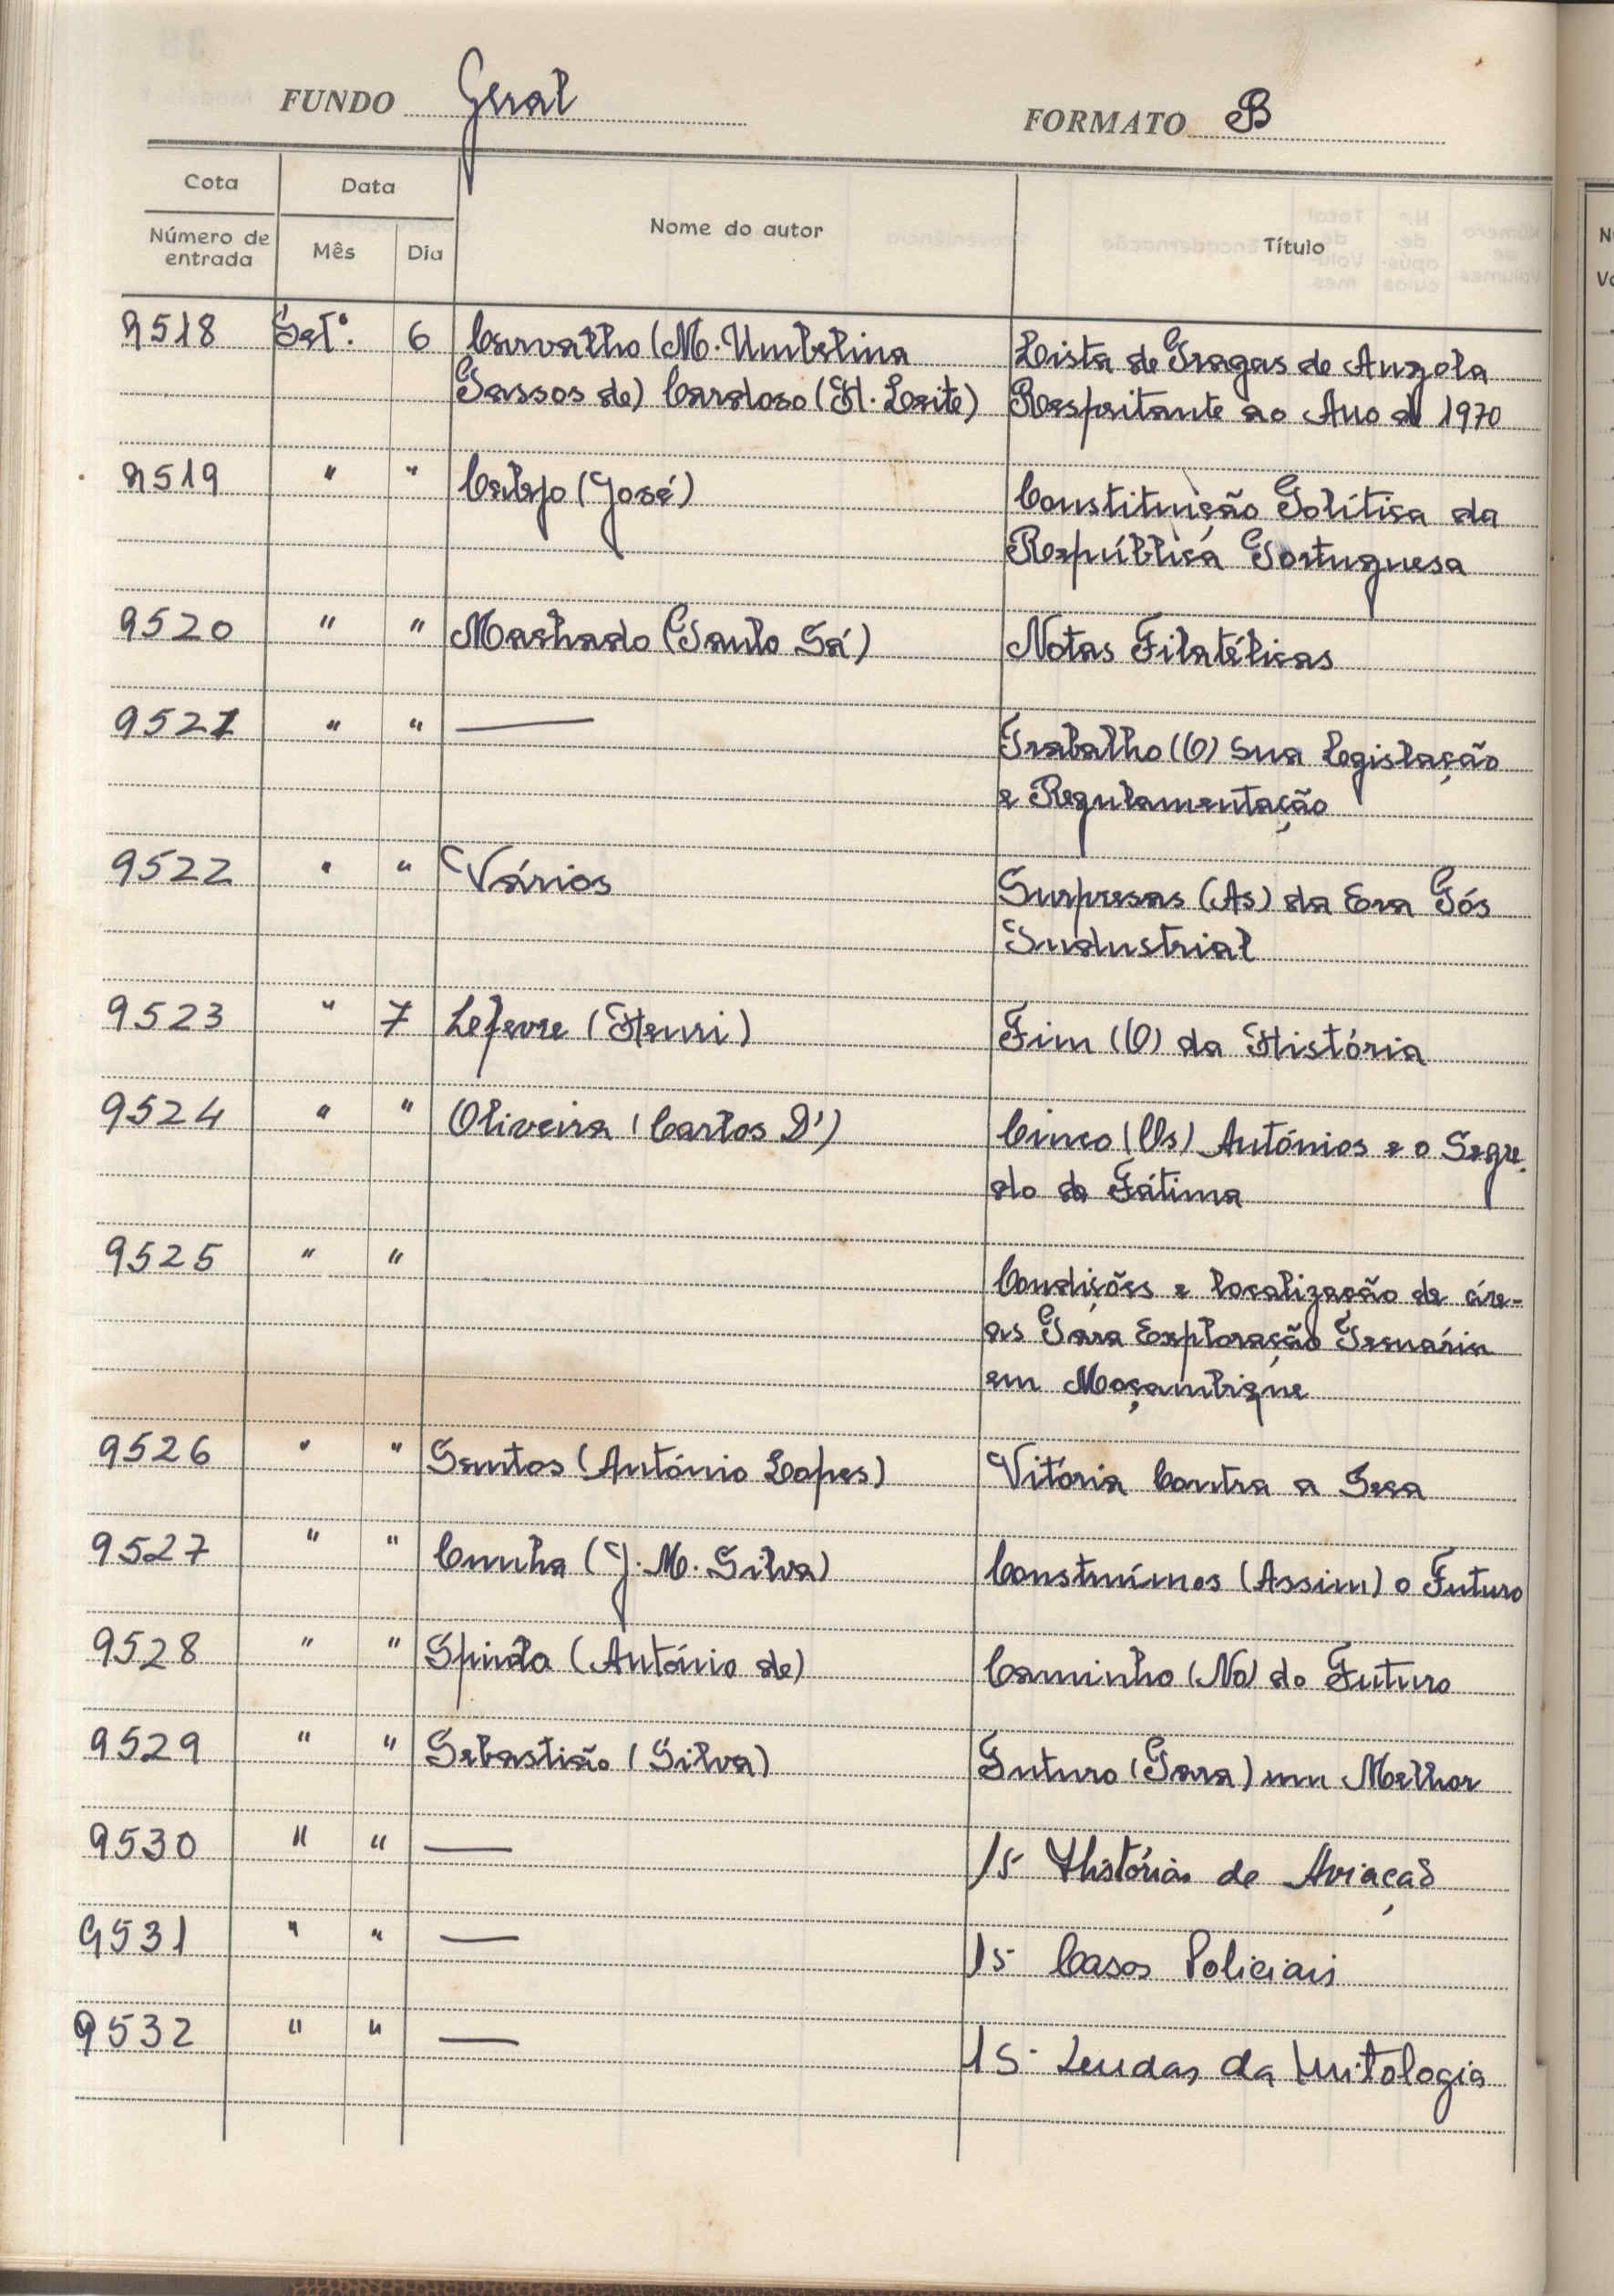 FUNDO Geral FORMATO B
Cota Data Nome do autor Título
Número de entrada Mês Dia
9518 Set.º 6 Carvalho (M. Umbelina Lista de Pragas de Angola
Passos de) Cardoso (H. Leite) Respeitante ao Ano de 1970
9519 " " (José) Constituição Política da
República Portuguesa
9520 " " Machado (Paulo Sá) Notas Filatélicas
9521 " " — Trabalho (O) Sua Legislação
e Regulamentação
9522 " " Vários Surpresas (As) da Era Pós
Industrial
9523 " 7 Lefevre (Henri) Fim (O) da História
9524 " " Oliveira (Carlos D') Cinco (Os) Antónios e o Segre-
do de Fátima
9525 " " Condições e Localização de áre-
as Para Exploração Pecuária
em Moçambique
9526 " " Santos (António Lopes) Vitória Contra a Seca
9527 " " Cunha (J. M. Silva) Construímos (Assim) o Futuro
9528 " " Spinola (António de) Caminho (No) do Futuro
9529 " " Sebastião (Silva) Futuro (Para) um Melhor
9530 " " — 15 Histórias de Aviação
9531 " " — 15 Casos Policiais
9532 " " — 15 Lendas da Mitologia